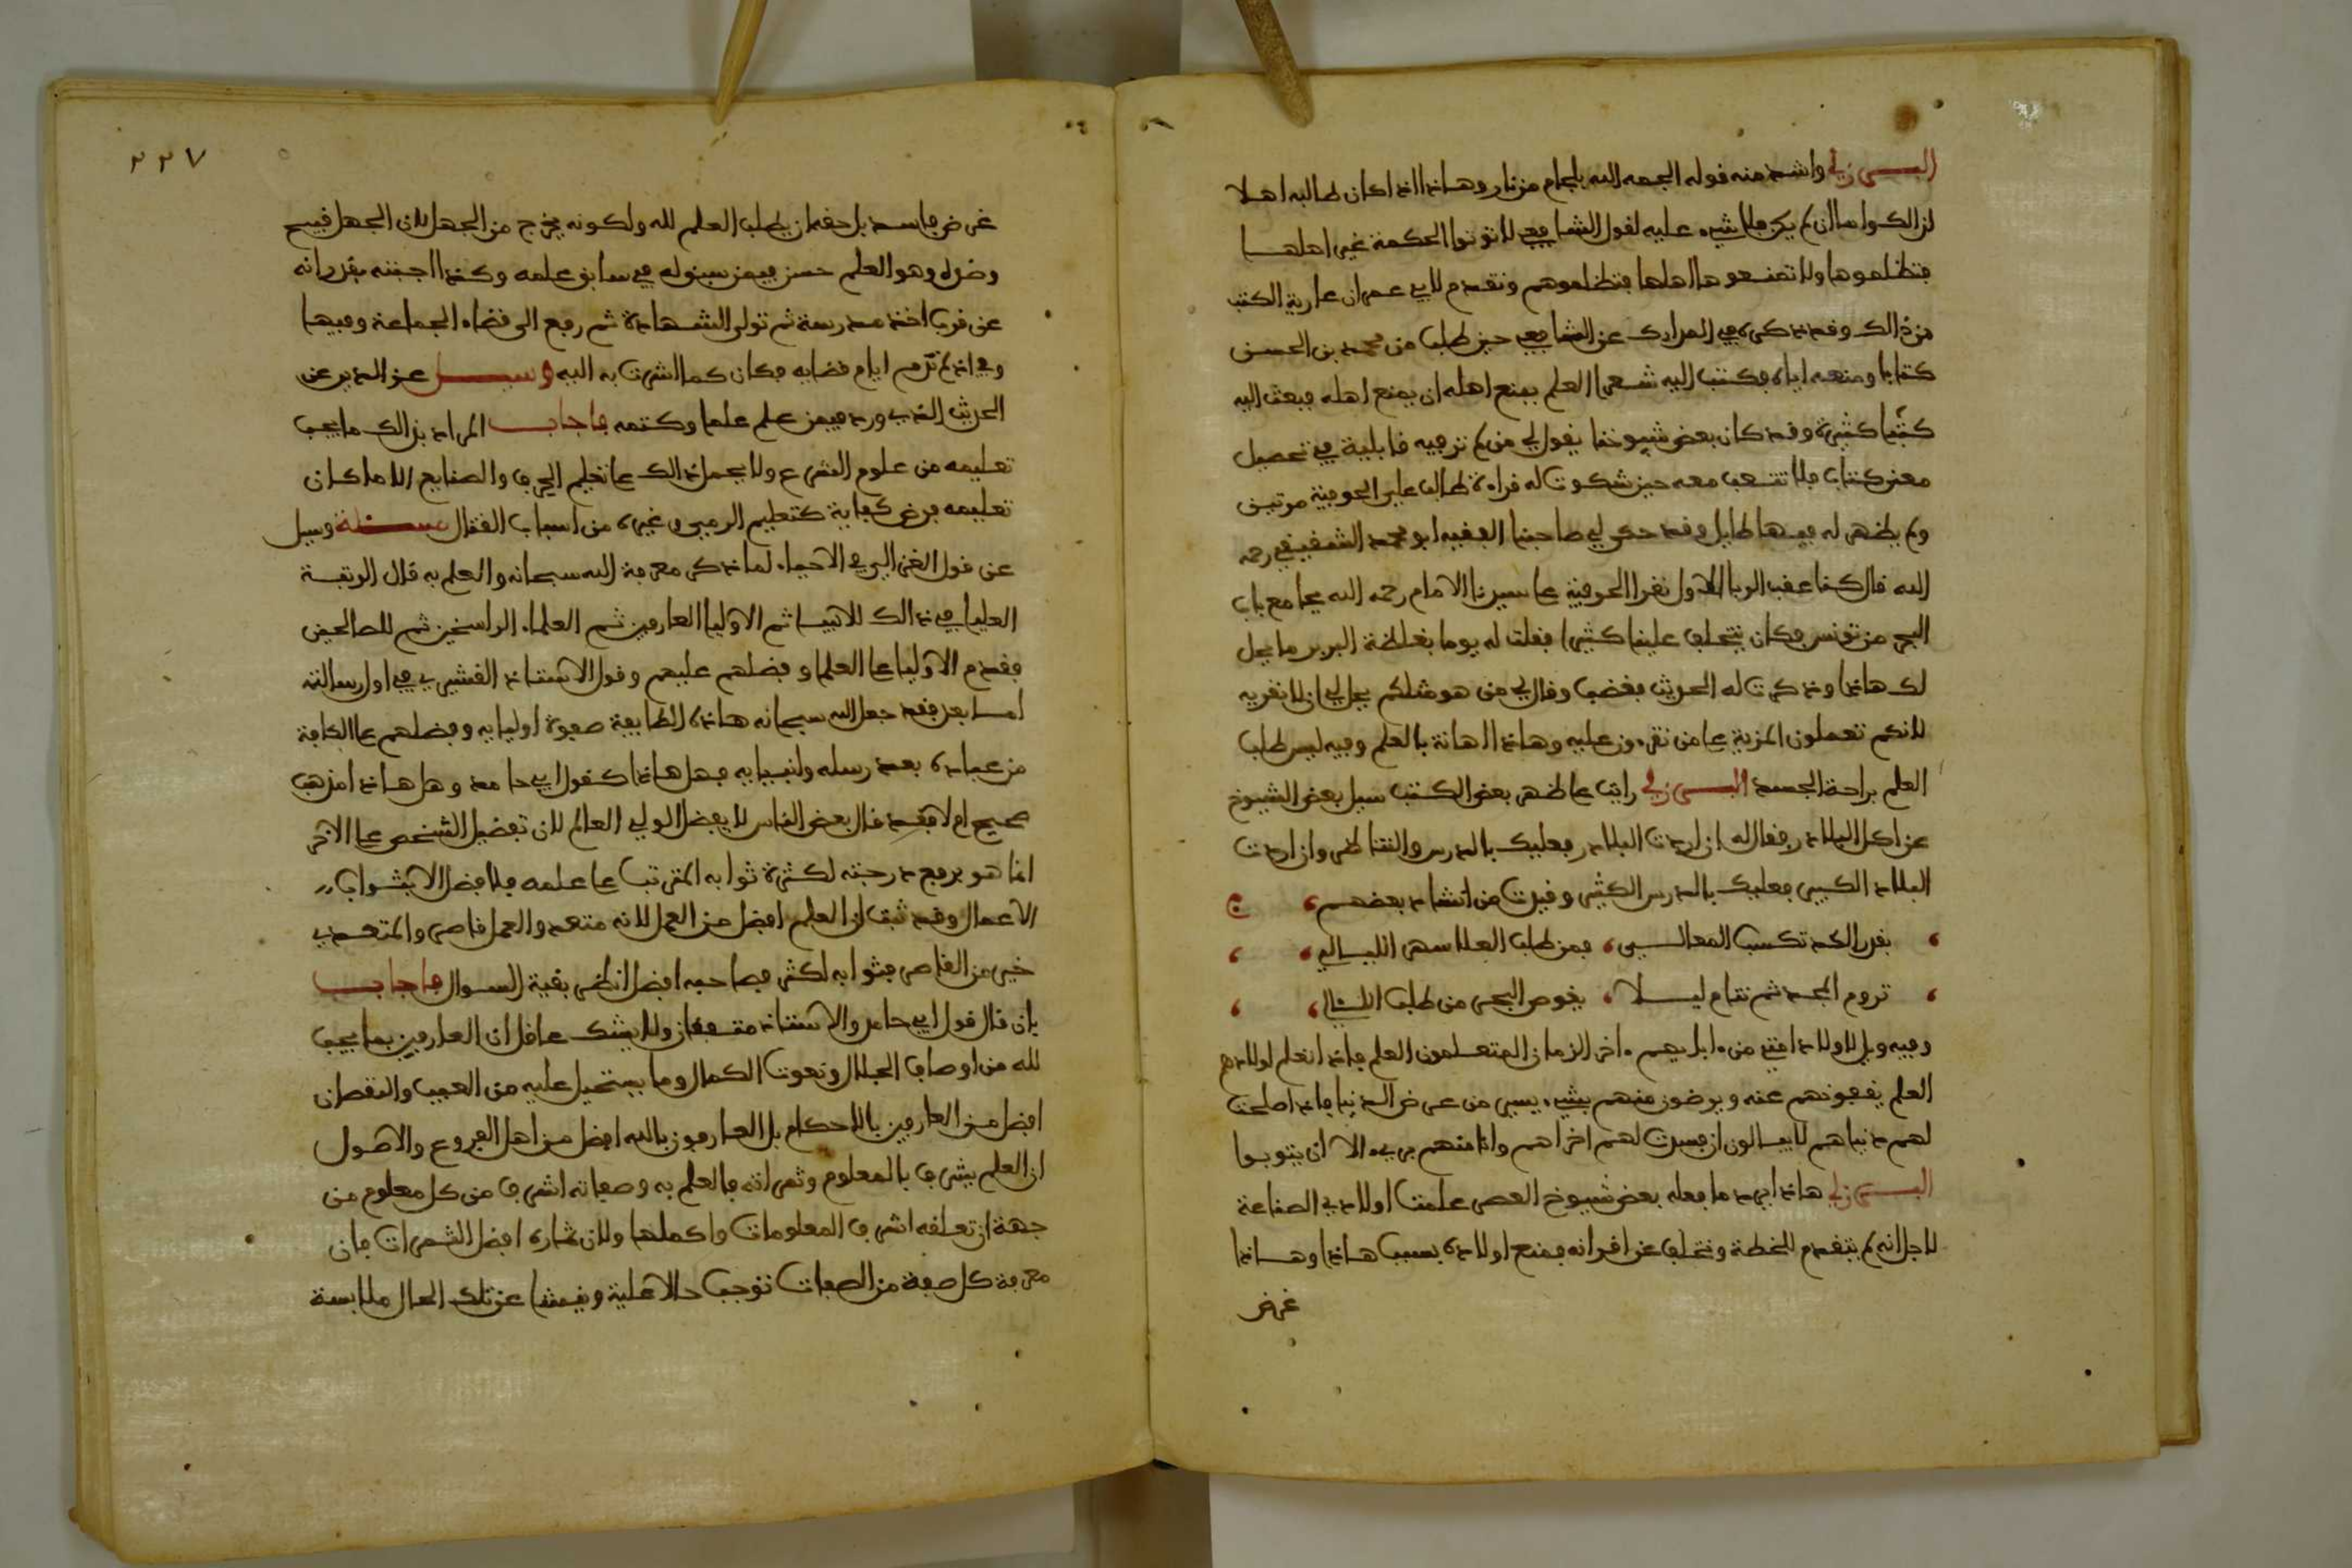 البــرزلي واشد منه قوله الجمه الله بلجام من نار وهاذا اذا كان طالبه اهلا
لذالك واما ان لم يكن فلا شيء عليه لقول الشافعي لا توتوا الحكمة غير اهلها
فتظلموها ولا تمنعوها اهلها فتظلموهم وتقدم لابي عمران عارية الكتب
من ذالك وقد ذكر في المدارك عن الشافعي حين طلب من محمد بن الحسن
كتابا ومنعه اياه فكتب اليه شعرا العلم يمنع اهله ان يمنع اهله فبعث اليه
كتبا كثيرة وقد كان بعض شيوخنا يقول لي من لم تر فيه قابلية في تحصيل
معنى كتاب فلا تتعب معه حين شكوت له قراءة طالب علي الحوفية مرتين
ولم يظهر له فيها طايل وقد حكى لي صاحبنا الفقيه ابو محمد الشقيقي رحمه
الله قال كنا عقب الوبا الاول نقرا الحوفية على سيدنا الامام رحمه الله بجامع باب
البحر من تونس فكان يتخلف علينا كثيرا فقلت له يوما بغلظة البربر ما يحل
لك هاذا وذكرت له الحديث فغضب وقال لي من هو مثلكم يحل لي ان لا نقريه
لانكم تعملون المزية على من تقرءون عليه وهاذا اهانة بالعلم وفيه ليس طلب
العلم براحة الجسد البــرزلي رايت على ظهر بعض الكتب سيل بعض الشيوخ
عن اكل البلاذر فقال له ان اردت البلاذر فعليك بالدرس والتناظر وان اردت
البلاذ الكبير فعليك بالدرس الكثير وقيدت من انشاد بعضهم ، ج
، بقدر الكد تكسب المعالــي ، فمن طلب العلا سهر الليالي ، ،
، تروم المجد ثم تنام ليــلا ، يغوص البحر من طلب اللئالي ، ،
وفيه ويل لاولاد امتي من ءابايهم ءاخر الزمان المتعلمون العلم فاذا تعلم اولادهم
العلم يقفونهم عنه ويرضون منهم بشيء يسير من عرض الدنيا فاذا صلحت
لهم دنياهم لا يبالون ان فسدت لهم اخراهم وانا منهم بريء الا ان يتوبوا
البــرزلي هاذا يرد ما فعله بعض شيوخ العصر علمت اولادي الصناعة
لاجل انه لم يتقدم للخطة وتخلف عن اقرانه فمنع اولاده بسبب هاذا وهاذا
غرض
٢٢٧
غرض فاسد بل حقه ان يطلب العلم لله ولكونه يخرج من الجهل لان الجهل قبيح
وضده وهو العلم حسن فيمن سبق له في سابق علمه وكذا اجبته بقدر انه
عن قرب اخذ مدرسة ثم تولى الشهادة ثم رفع الى قضاء الجماعة وفيها
وفي اذ لم تدم ايام قضايه فكان كما اشرت به اليه وســيل عز الدين عن
الحديث الذي ورد فيمن علم علما وكتمه فاجاب المراد بذالك ما يجب
تعليمه من علوم الشرع ولا يحمل ذالك على تعليم الحرف والصنايع الا ما كان
تعليمه فرض كفاية كتعليم الرمي وغيره من اسباب القتال مســئلة وسيل
عن قول الغزالي في الاحياء لما ذكر معرفة الله سبحانه والعلم به قال الرتبة
العليا في ذالك للانبيا ثم الاوليا العارفين ثم العلماء الراسخين ثم للصالحين
فقدم الاوليا على العلما وفضلهم عليهم وقول الاستاذ القشيري في اول رسالته
اما بعد فقد جعل الله سبحانه هاذه الطايفة صفوة اوليايه وفضلهم على الكافة
من عباده بعد رسله وانبيايه فهل هاذا كقول ابي حامد وهل هاذا مذهب
صحيح ام لا فقد قال بعض الناس لا يفضل الولي العالم لان تفضيل الشخص على الاخر
انما هو برفع درجته لكثرة ثوابه المترتب على علمه فلا فضل الا بثواب
الاعمال وقد ثبت ان العلم افضل من العمل لانه متعد والعمل قاصر والمتعدي
خير من القاصر فثوابه اكثر فصاحبه افضل انظر بقية السوال فاجاب
بان قال قول ابي حامد والاستاذ متفقان ولا يشك عاقل ان العارفين بما يجب
لله من اوصاف الجلال ونعوت الكمال وما يستحيل عليه من العيب والنقصان
افضل من العارفين بالاحكام بل العارفون بالله افضل من اهل الفروع والاصول
ان العلم يشرف بالمعلوم وثمراته فالعلم به وصفاته اشرف من كل معلوم من
جهة ان تعلقه اشرف المعلومات واكملها ولان ثماره افضل الثمرات فان
معرفة كل صفة من الصفات توجب حالا علية وينشا عن تلك الحال ملابسة